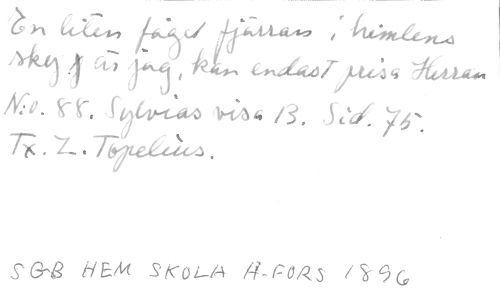 En liten fågel fjärran i himlens
sky är jag, kan endast prisa Herran
N:o. 88. Sylvias visa B. Sid. 75.
Tx. Z. Topelius.
SGB HEM SKOLA H-FORS 1896